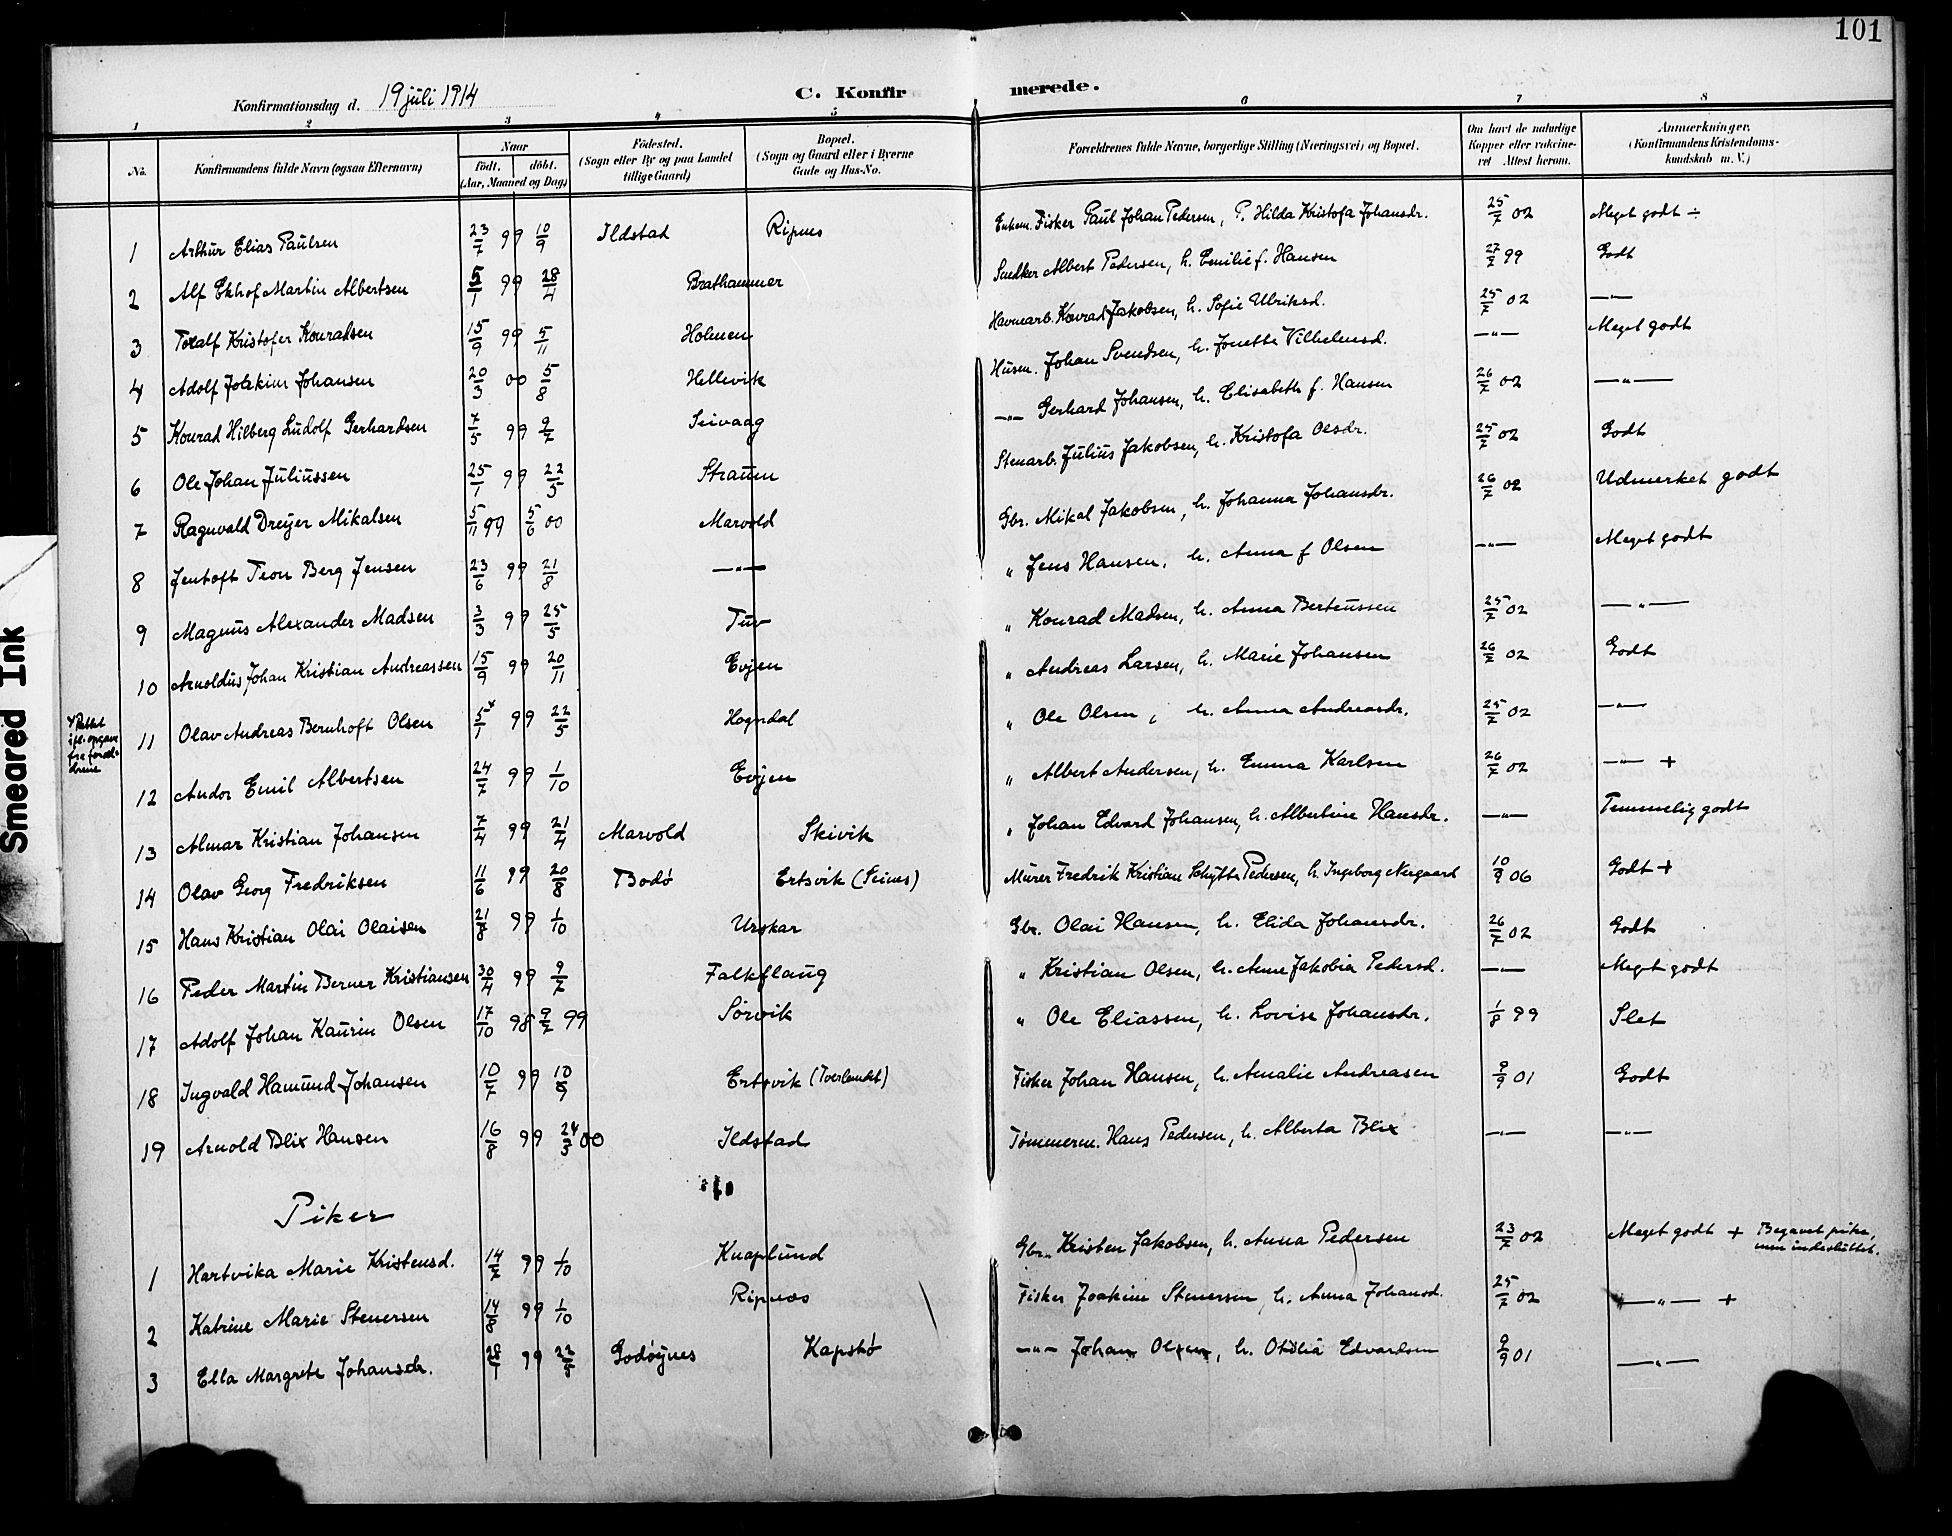 101
Konfirmationsdag d. 19 juli 1914 C. Konfirmerede.
1 2 3 4 5 6 7 8
No. Konfirmandens fulde Navn (ogsaa Efternavn) Naar født. døbt. (Aar, Maaned og Dag) Fødested. (Sogn eller By og paa Landet tillige Gaard) Bopæl. (Sogn og Gaard eller i Byerne Gade og Hus-No. Forældrenes fulde Navne, borgerlige Stilling (Næringsvei) og Bopæl. Om havt de naturlige Kopper eller vaccineret Attest herom. Anmærkninger. (Konfirmandens Kristendomskundskab m. V.)
1 Arthur Elias Paulsen 23/7 99 10/9 Ildstad Ripnes Enkem. Fisker Paul Johan Pedersen, P. Hilda Kristofa Johansdr. 25/7 02 Meget godt ÷
2 Alf Ekhof Martin Albertsen 5/1 99 28/4 Brathammer Snedker Albert Pedersen, h. Emilie f. Hansen 27/7 99 Godt
3 Toralf Kristofer Konradsen 15/9 99 5/11 Holmen Havnearb. Konrad Jakobsen, h. Sofie Ulriksd. 25/7 02 —"—
4 Adolf Joakim Johansen 20/3 00 5/8 Hellevik Husm. Johan Svendsen, h. Jonette Vilhelmsd. —"— Meget godt
5 Konrad Hilberg Ludolf Gerhardsen 7/5 99 9/7 Seivaag —"— Gerhard Johansen, h. Elisabeth f. Hansen 26/7 02 —"—
6 Ole Johan Juliussen 25/1 99 22/5 Straum Stenarb. Julius Jakobsen, h. Kristofa Olsdr. 25/7 02 Godt
7 Ragnvald Dreyer Mikalsen 5/11 99 5/6 00 Marvold Gbr. Mikal Jakobsen, h. Johanna Johansdr. 26/7 02 Udmerket godt
8 Jentoft Teon Berg Jensen 23/6 99 21/8 —"— " Jens Hansen, h. Anna f Olsen —"— Meget godt
9 Magnus Alexander Madsen 3/3 99 25/5 Tuv " Konrad Madsen, h. Anna Berteussen 25/7 02 —"—
10 Arnoldus Johan Kristian Andreassen 15/9 99 20/11 Evjen " Andreas Larsen, h. Marie Johansen 26/7 02 Godt
11 Olav Andreas Bernhoft Olsen 5/1 99 22/5 Hogndal " Ole Olsen, h. Anna Andreasdr. 25/7 02 —"—
12 Andor Emil Albertsen 24/7 99 1/10 Evjen " Albert Andersen, h. Emma Karlsen 26/7 02 —"— +
13 Almar Kristian Johansen 7/4 99 21/4 Marvold Skivik " Johan Edvard Johansen, h. Albertine Hansdr. —"— Temmelig godt
14 Olav Georg Fredriksen 11/6 99 20/8 Bodø Ertsvik (Seines) Murer Fredrik Kristian Schytte Pedersen, h. Ingeborg Nergaard 10/9 06 Godt +
15 Hans Kristian Olai Olaisen 21/8 99 1/10 Urskar Gbr. Olai Hansen, h. Elida Johansdr. 26/7 02 Godt
16 Peder Martin Berner Kristiansen 30/4 99 9/7 Falkflaug " Kristian Olsen, h. Anne Jakobia Pedersd. —"— Meget godt
17 Adolf Johan Kaurin Olsen 17/10 98 9/7 99 Sørvik " Ole Eliassen, h. Lovise Johansdr. 1/8 99 Slet
18 Ingvald Hamund Johansen 10/7 99 10/9 Ertsvik (Tverlandet) Fisker Johan Hansen, h. Amalie Andreasen 9/9 01 Godt
19 Arnold Blix Hansen 16/8 99 24/5 00 Ildstad Tømmerm. Hans Pedersen, h. Alberta Blix —"— —"—
Piker
1 Hartvika Marie Kristensd. 14/7 99 1/10 Knaplund Gbr. Kristen Jakobsen, h. Anna Pedersen 23/7 02 Meget godt + Begavet pike, men indesluttet.
2 Katrine Marie Stenersen 14/8 99 1/10 Ripnes Fisker Joakim Stenersen, h. Anna Johansd. 25/7 02 —"— +
3 Ella Margrete Johansdr. 99 Godøynes Kapskø —"— Johan Olsen, h. Otilia Edvardsen 9/9 01 —"—
Smeared Ink